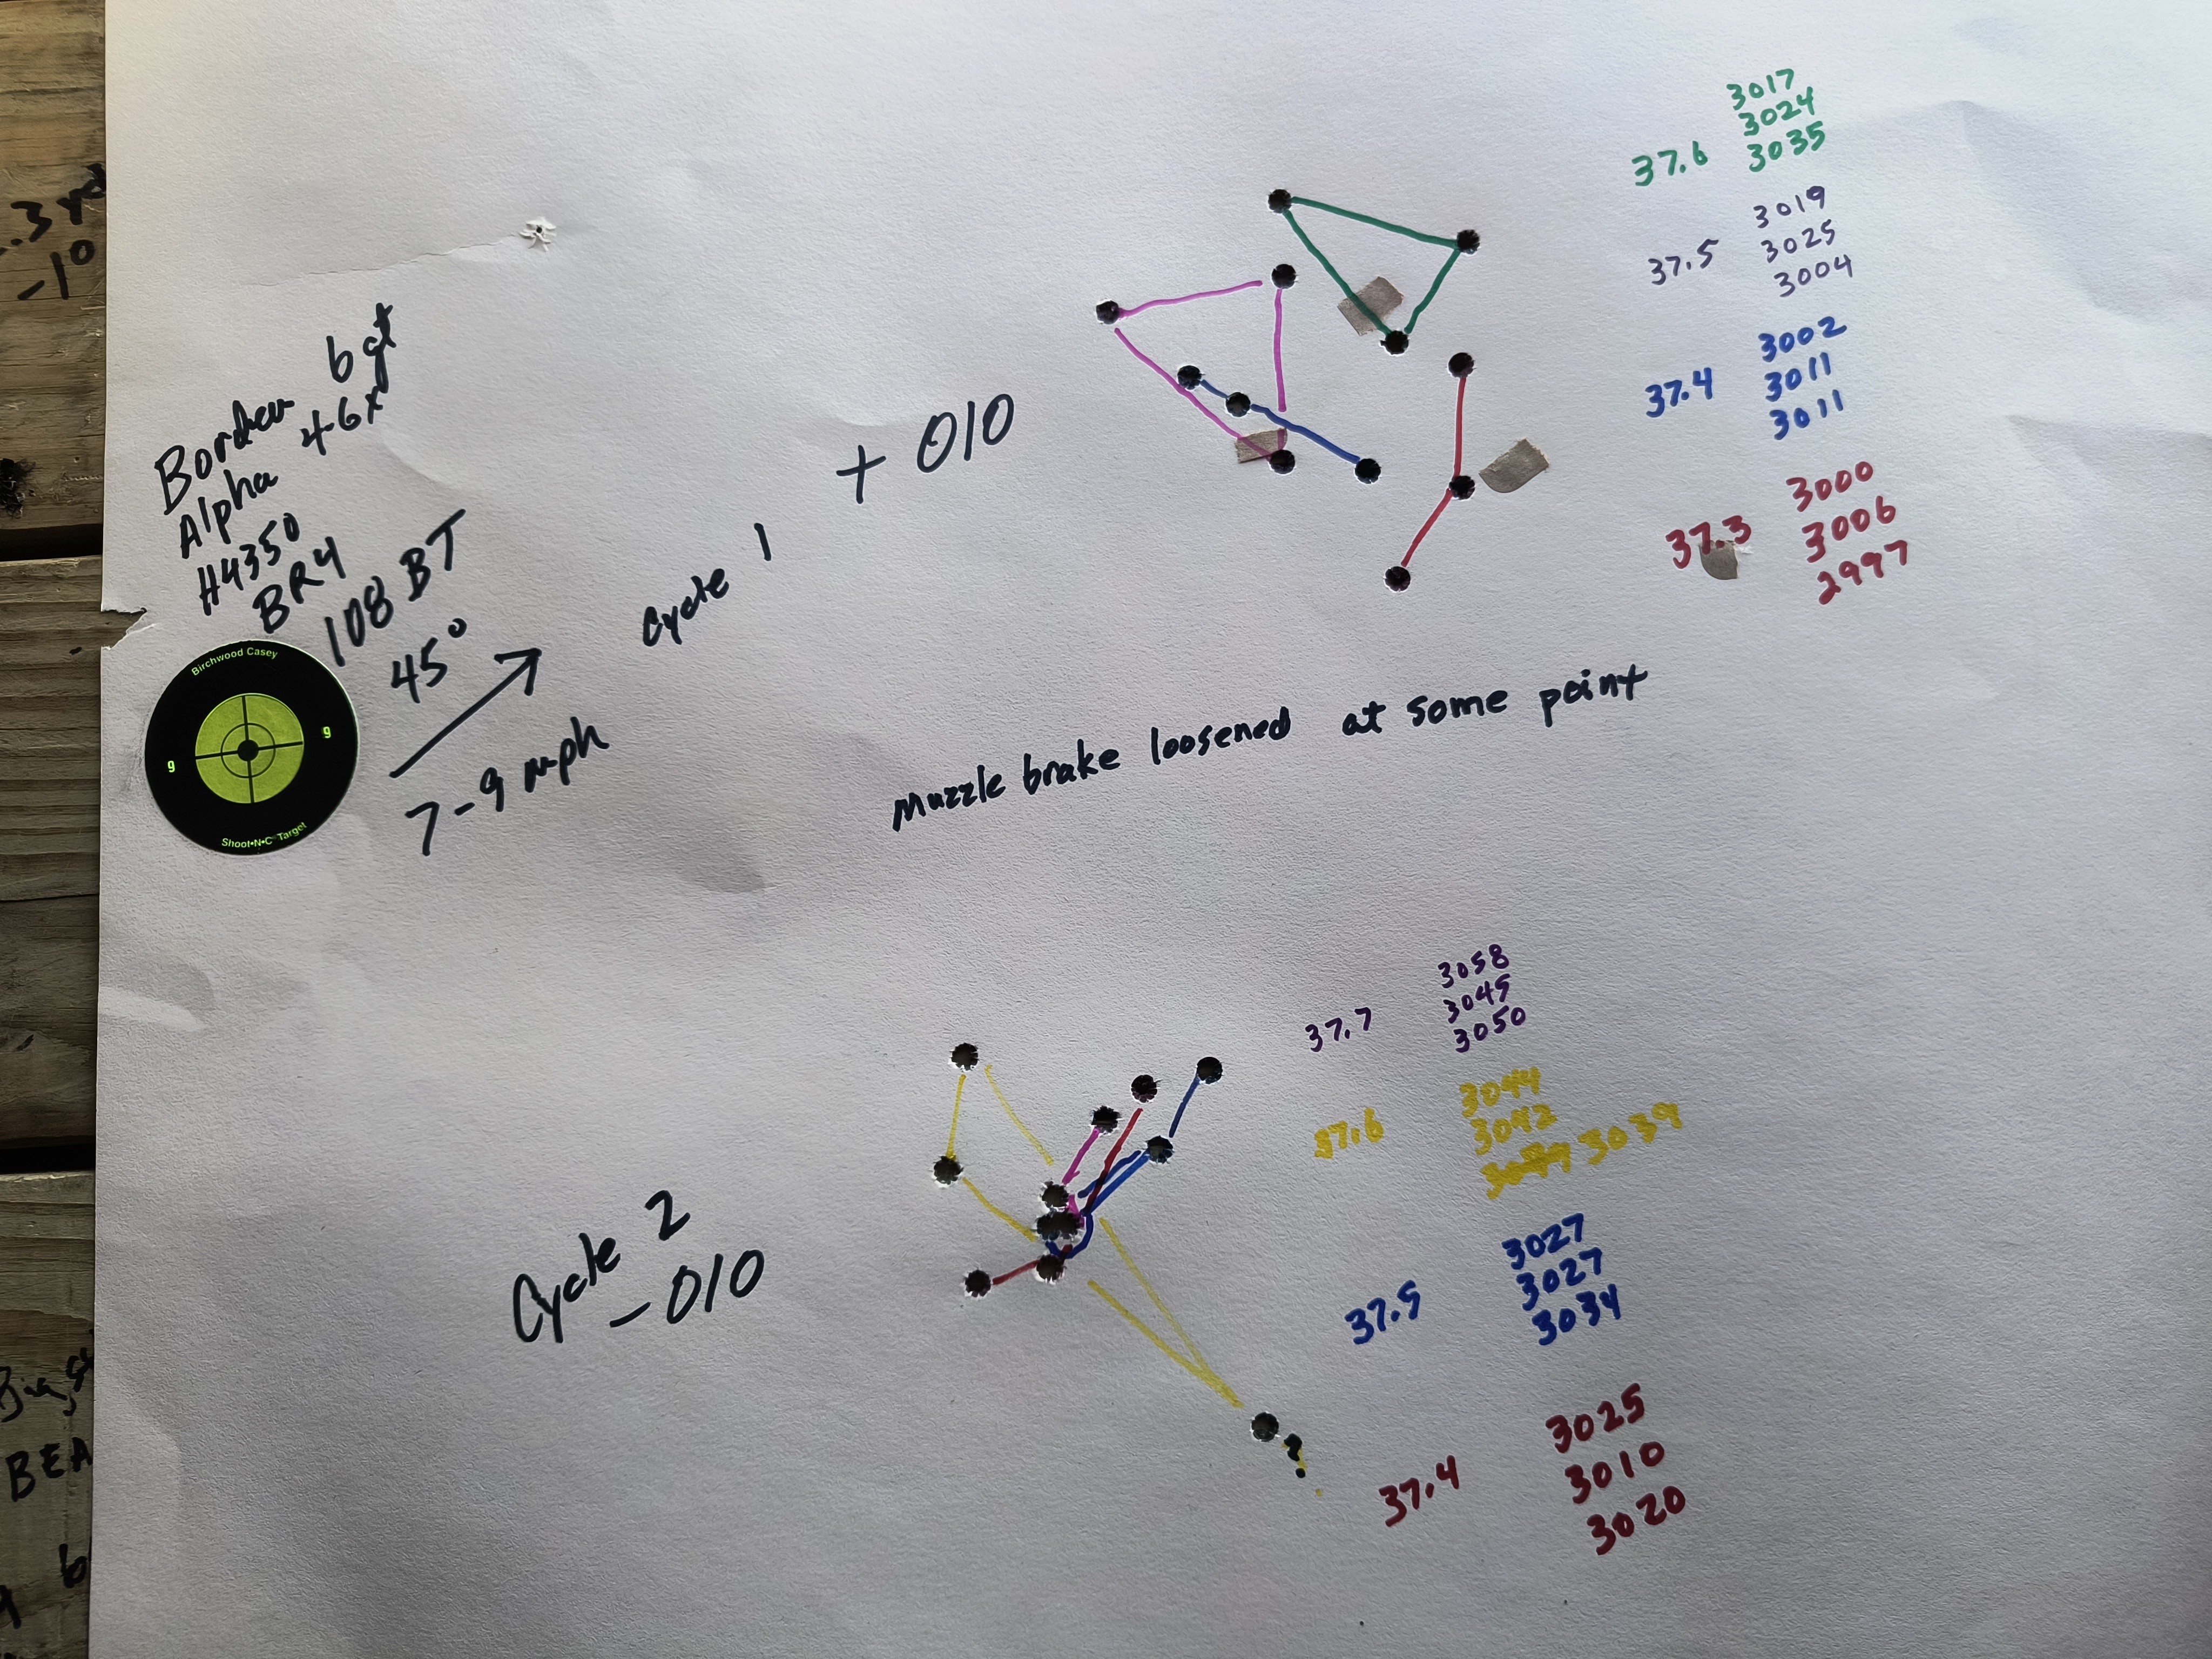 .3
-10
6 gt
Borden
Alpha 4-6x
H4350
BR4
108 BT
45°
7-9 mph
Birchwood Casey
9
9
Shoot•N•C Target
Cycle 1
+ 010
3017
3024
37.6 3035
3019
37.5 3025
3004
3002
37.4 3011
3011
3000
37.3 3006
2997
muzzle brake loosened at some point
Cycle 2
- 010
3058
3045
37.7 3050
3044
37.6 3042
3039
3027
3027
37.5 3034
?
3025
37.4 3010
3020
BEA
6